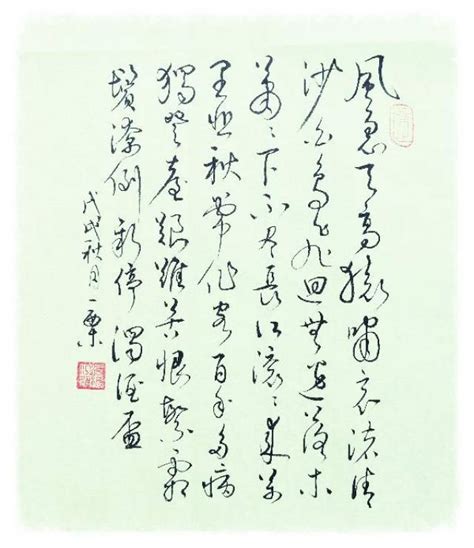 風急天高猿嘯哀渚清
沙白鳥飛迴無邊落木
蕭〻下不盡長江滾〻來萬
里悲秋常作客百年多病
獨登臺艱難苦恨繁霜
鬢潦倒新停濁酒盃
戊戌秋月一粟